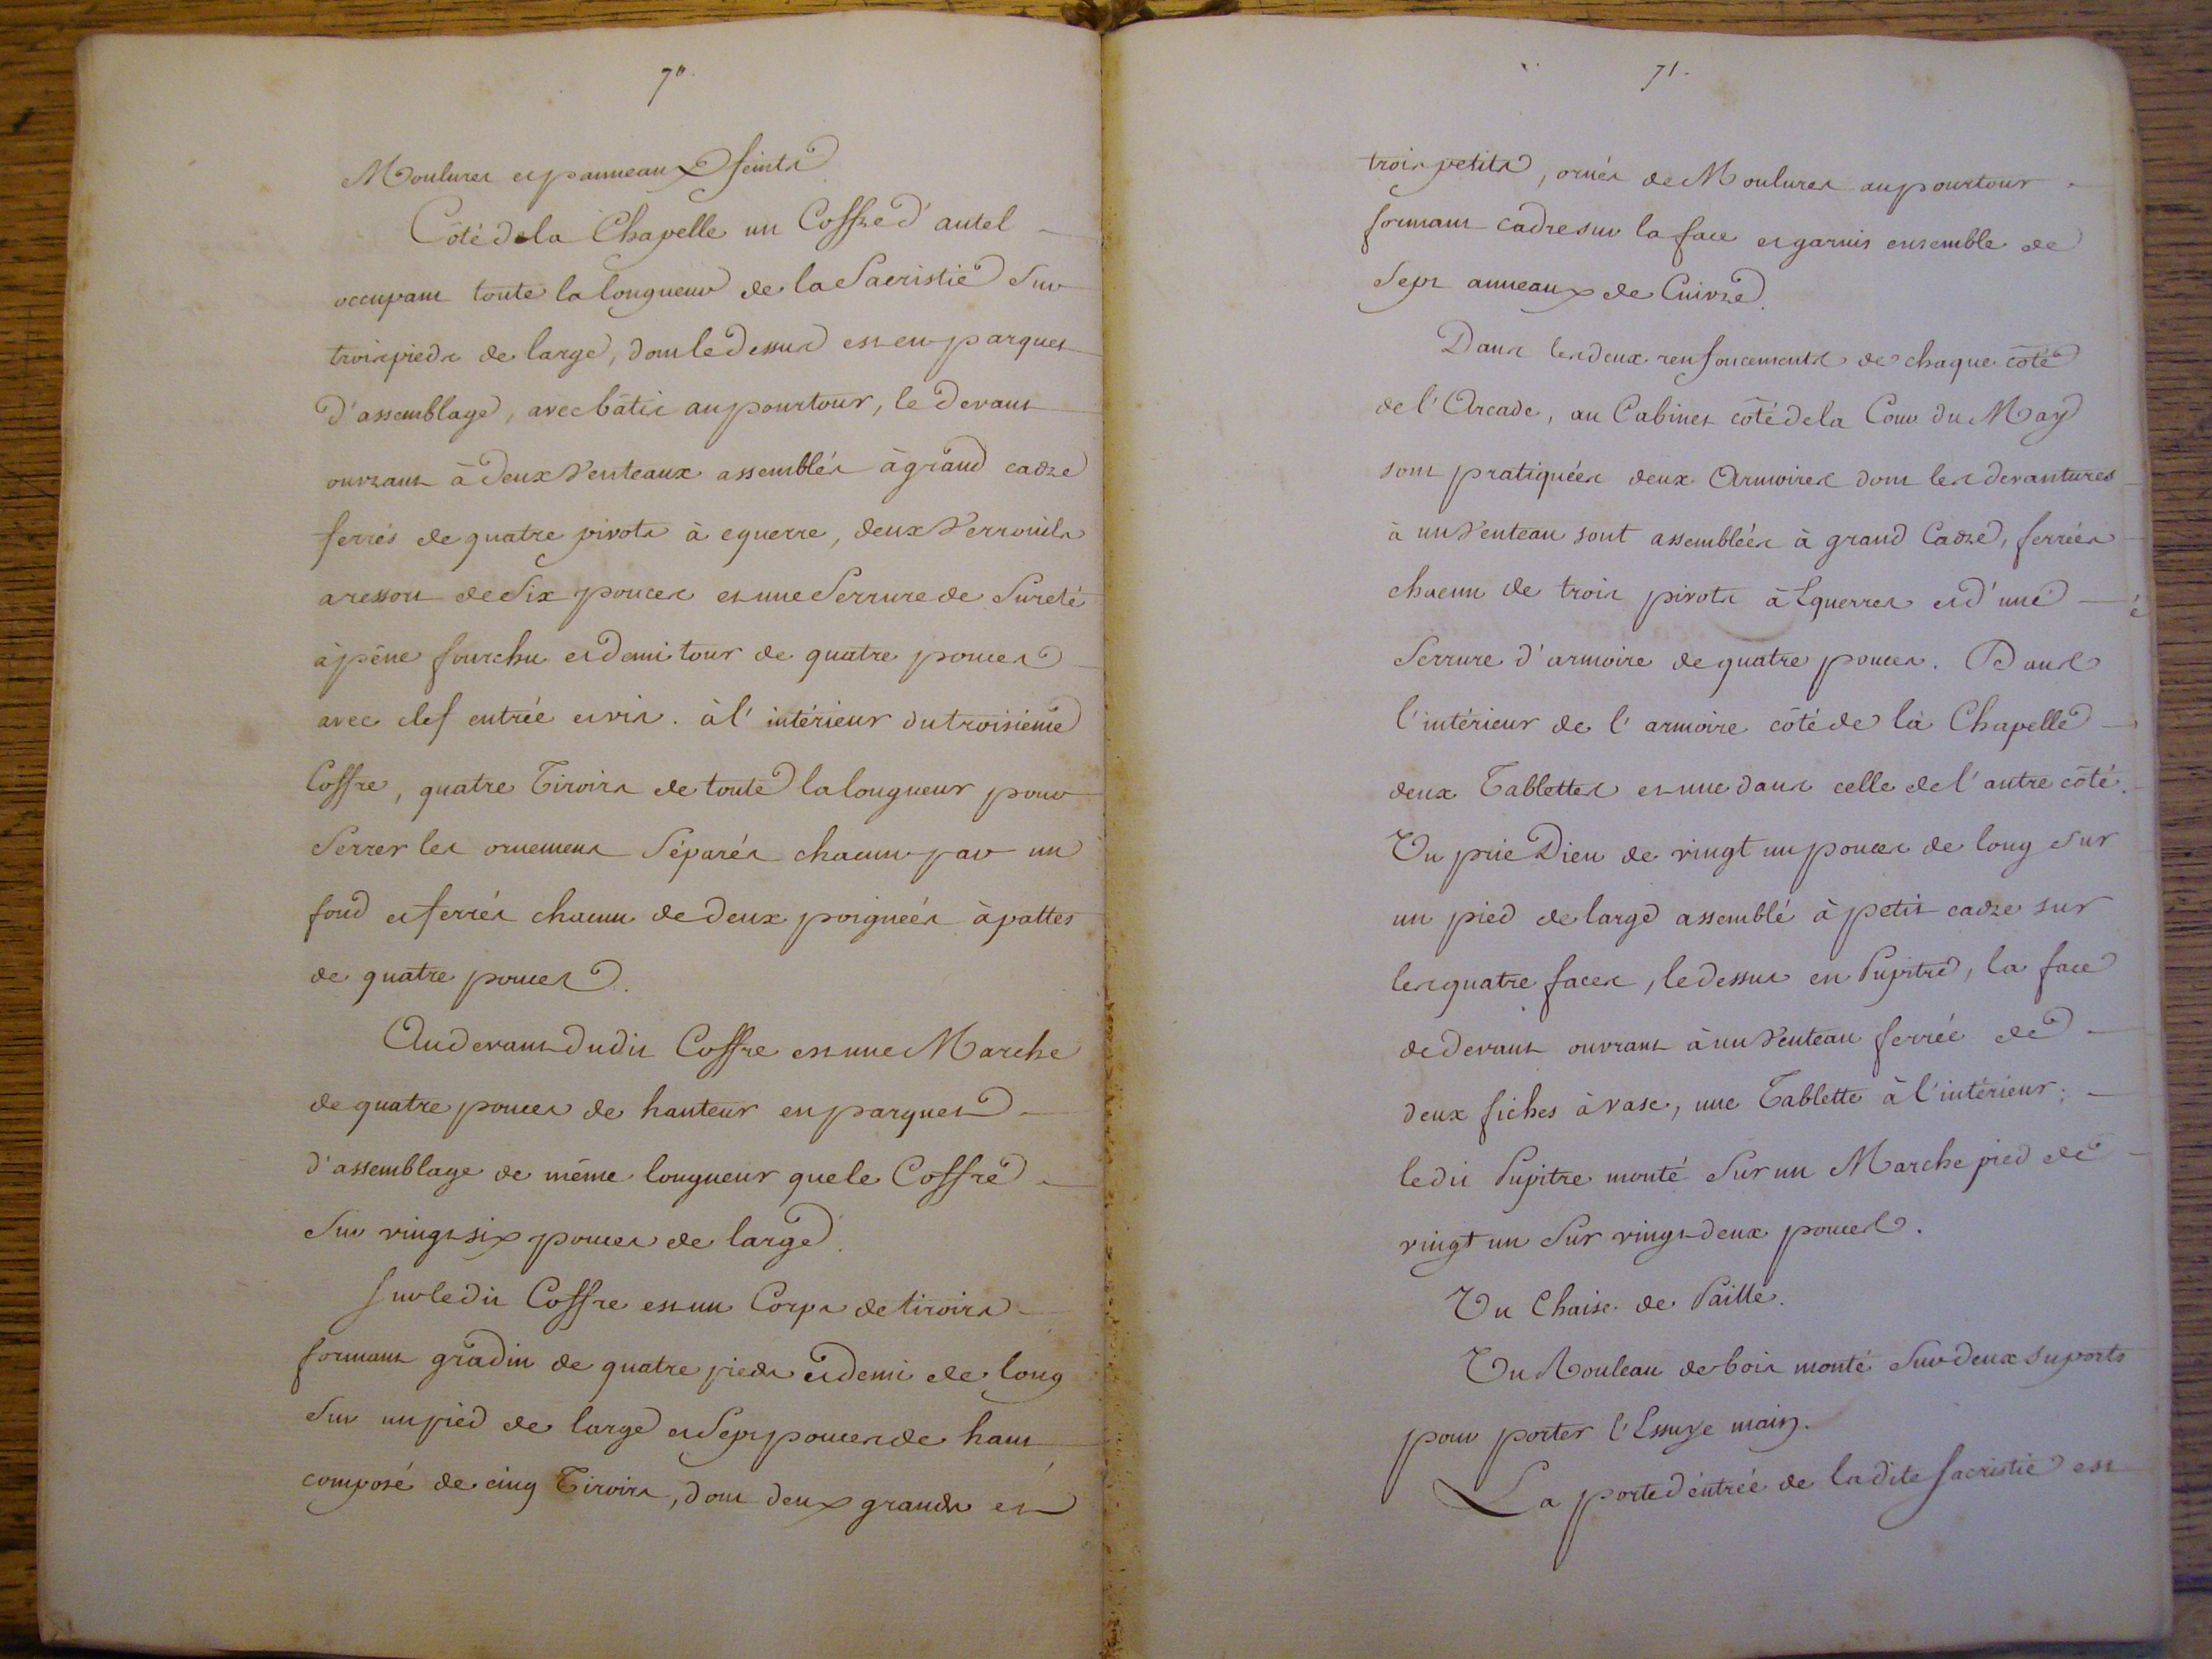 70.
Moulures et panneaux feints.
Côté de la Chapelle un Coffre d'autel
occupant toute la longueur de la Sacristie Sur
trois pieds de large, dont le dessus est en parquet
d'assemblage, avec bâtis au pourtour, le devant
ouvrant à deux Venteaux assemblés à grand cadre
ferrés de quatre pivots à equerre, deux Verrouils
a ressort de Six pouces et une Serrure de Sureté
à pêne fourchu et demi tour de quatre pouces
avec clef entrée et vis. à l'intérieur du troisiéme
Coffre, quatre Tiroirs de toute la longueur pour
Serrer les ornemens Séparés chacun par un
fond et ferrés chacun de deux poignées à pattes
de quatre pouces.
Au devant dudit Coffre est une Marche
de quatre pouces de hauteur en parquet
d'assemblage de même longueur que le Coffre
Sur vingt six pouces de large.
Sur ledit Coffre est un Corps de tiroirs
formant gradin de quatre pieds et demi de long
Sur un pied de large et Sept pouces de haut
composé de cinq Tiroirs, dont deux grands et
71.
trois petits, ornés de Moulures au pourtour
formant cadre sur la face et garnis ensemble de
Sept anneaux de Cuivre.
Dans les deux renfoncements de chaque côté
de l'Arcade, au Cabinet côté de la Cour du May
sont pratiquées deux Armoires dont les devantures
à un Venteau sont assemblées à grand Cadre, ferrées
chacun de trois pivots à Equerres et d'une
Serrure d'armoire de quatre pouces. Dans
l'intérieur de l'armoire côté de la Chapelle
deux Tablettes et une dans celle de l'autre côté.
Un prie Dieu de vingt un pouces de long Sur
un pied de large assemblé à petit cadre sur
les quatre faces, le dessus en Pupitre, la face
de devant ouvrant à un Venteau ferrée de
deux fiches à vase, une Tablette à l'intérieur;
ledit Pupitre monté Sur un Marche pied de
vingt un Sur vingt deux pouces.
Un Chaise de Paille.
Un Rouleau de bois monté Sur deux suports
pour porter l'Essuye main.
La porte d'éntrée de ladite Sacristie est